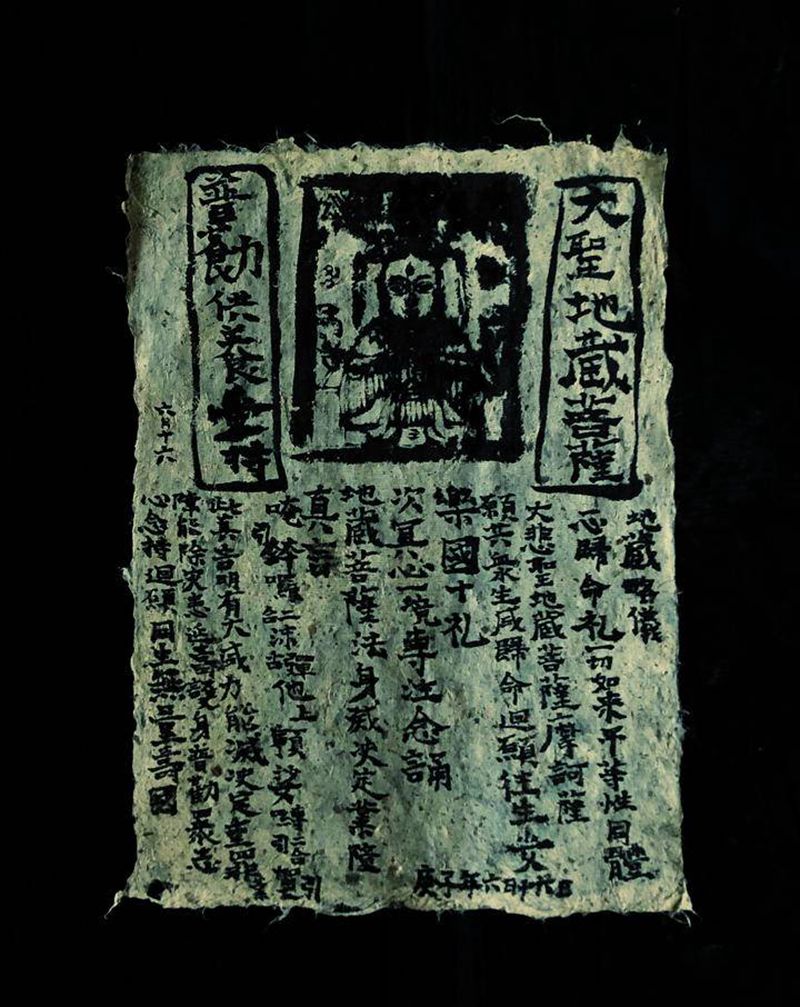 大聖地藏菩薩
普勸供養受持
地藏略儀
一心歸命礼一切如來平等性同體
大悲聖地藏菩薩摩訶薩
願共衆生咸歸命迴願往生安
樂國十礼
次冥心一境專注念誦
地藏菩薩法身滅决定業障
真言
唵鉢囉二合沫 彈他上 娑 賀引
此真言明有大威力能滅决定重罪業
障能除灾患延壽護身普勸衆志
心念持迴願同生無量壽國
六月十六
庚子年六月十六日